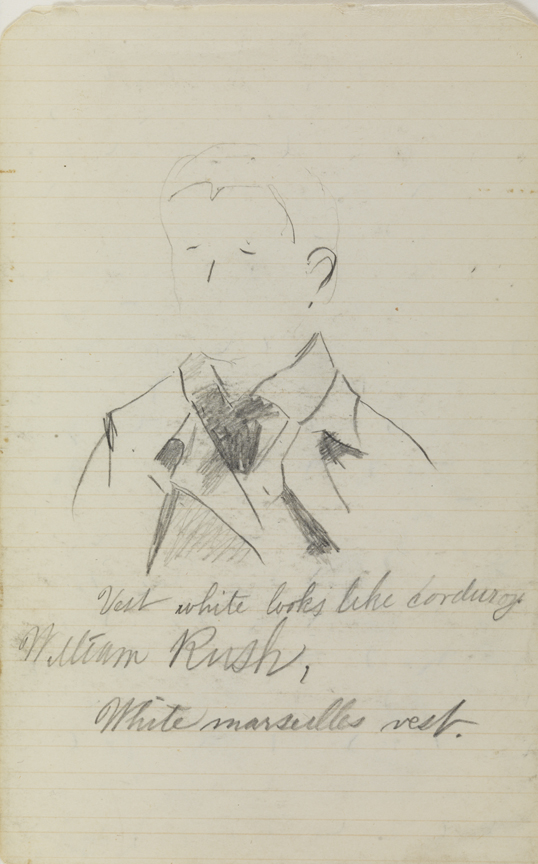 Vest white looks like corduroy
William Rush,
White marseilles vest.